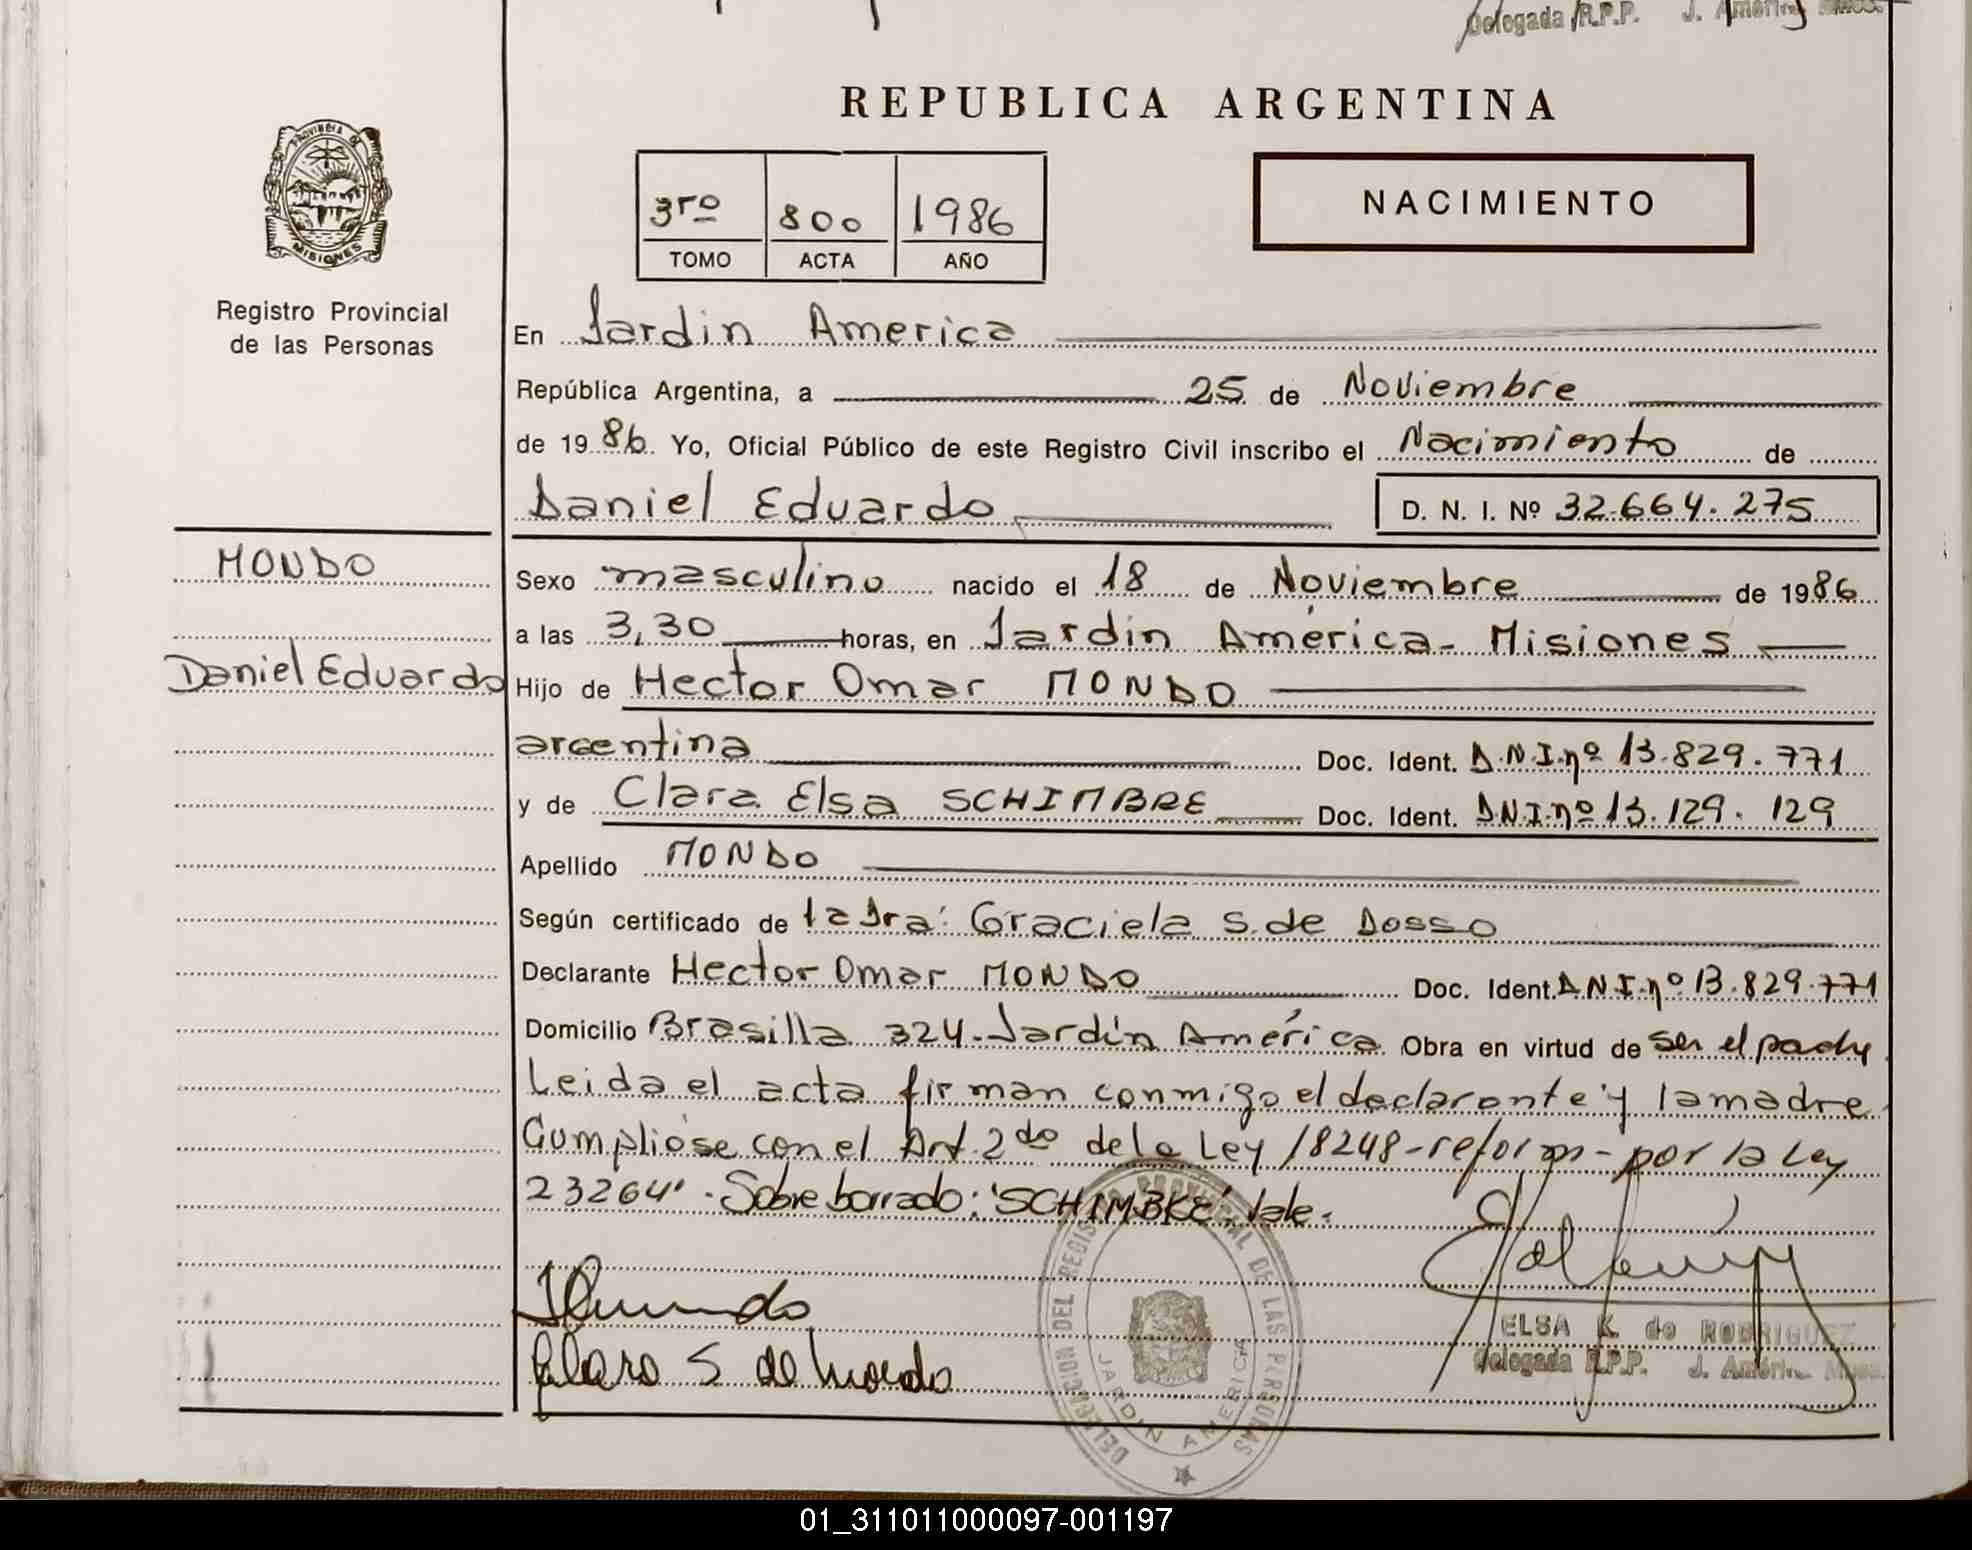 Delegada R.P.P. J. América
REPUBLICA ARGENTINA
PROVINCIA DE
MISIONES
Registro Provincial
de las Personas
3ro 800 1986
TOMO ACTA AÑO
NACIMIENTO
En Jardin America
República Argentina, a 25 de Noviembre
de 1986. Yo, Oficial Público de este Registro Civil inscribo el Nacimiento de
Daniel Eduardo D. N. I. Nº 32.664.275
MONDO
Daniel Eduardo
Sexo masculino nacido el 18 de Noviembre de 1986
a las 3,30 horas, en Jardin América - Misiones
Hijo de Hector Omar MONDO
argentina Doc. Ident. D.N.I.nº 13.829.771
y de Clara Elsa SCHIMBKE Doc. Ident. D.N.I.nº 13.129.129
Apellido MONDO
Según certificado de la Dra: Graciela S. de Dosso
Declarante Hector Omar MONDO Doc. Ident. D.N.I.nº 13.829.771
Domicilio Brasilla 324 - Jardín América Obra en virtud de ser el padre.
Leida el acta firman conmigo el declarante y la madre.
Cumplióse con el Art. 2do de la Ley 18248 - reform - por la Ley
23264 . - Sobre borrado: "SCHIMBKE", Vale.
Clara S de Mondo
DELEGACION DEL REGISTRO PROVINCIAL DE LAS PERSONAS
JARDIN AMERICA
ELSA K. de RODRIGUEZ
Delegada R.P.P. J. América
01_311011000097-001197